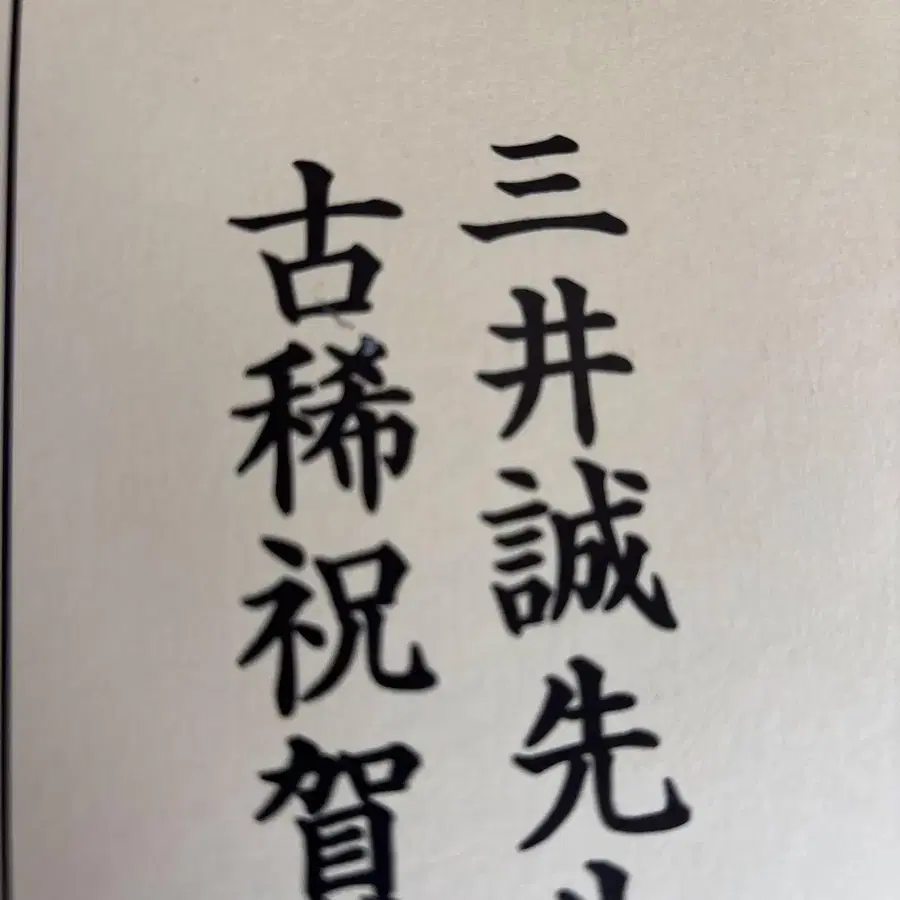 三井誠先生
古稀祝賀